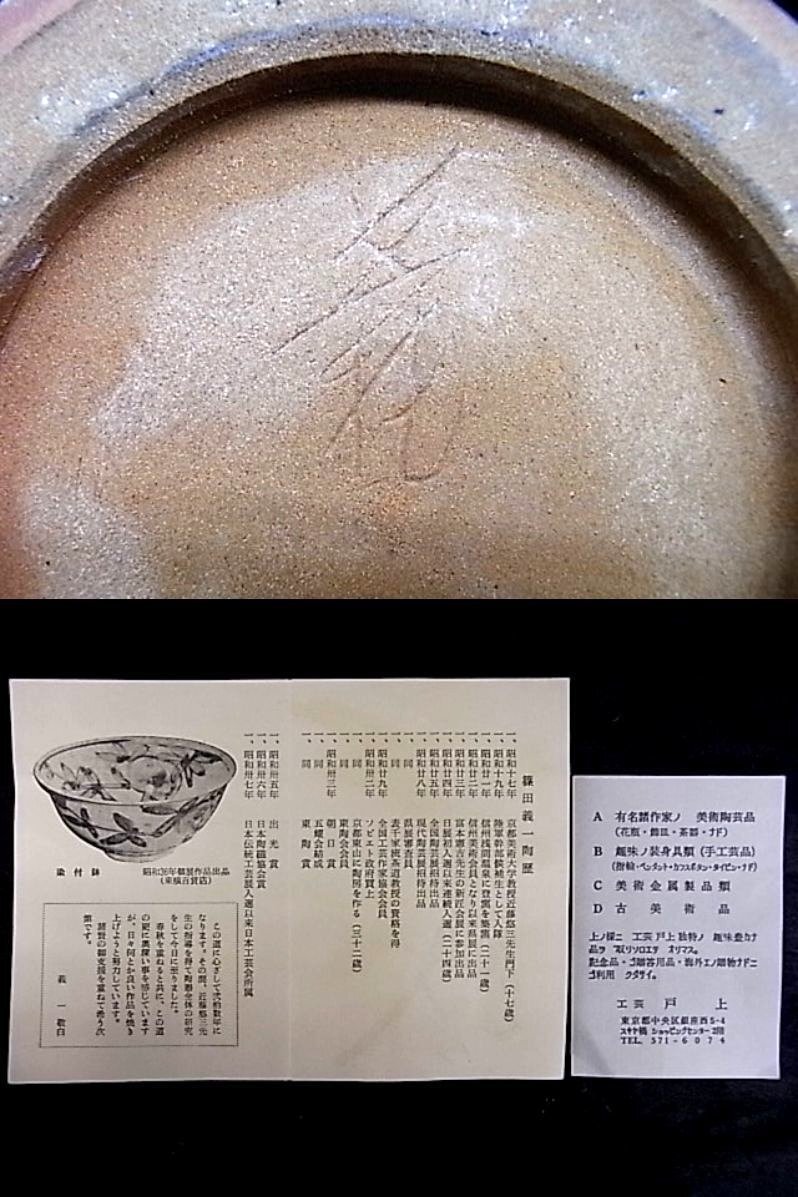 篠田義一陶歴
一、昭和十七年 京都美術大学教授近藤悠三先生門下(十七歳)
一、昭和十九年 陸軍幹部候補生として入隊
一、昭和廿一年 信州浅間温泉に登窯を築窯(二十一歳)
一、昭和廿二年 信州美術会員となり以来県展に出品
一、昭和廿三年 富本憲吉先生の新匠会展に参加出品
一、昭和廿四年 日展初入選以来連続入選(二十四歳)
一、昭和廿五年 全国陶芸展招待出品
一、昭和廿八年 現代陶芸展招待出品
一、同 県展審査員
一、同 表千家茶道教授の資格を得
一、昭和廿九年 全国工芸作家協会会員
一、昭和卅二年 ソビエト政府買上
一、同 京都東山に陶房を作る(三十二歳)
一、同 東陶会会員
一、昭和卅三年 朝日賞
一、同 五耀会結成
一、同 東陶賞
一、昭和卅五年 出光賞
一、昭和卅六年 日本陶磁協会賞
一、昭和卅七年 日本伝統工芸展入選以来日本工芸会所属
染付鉢
昭和36年個展作品出品
(東横百貨店)
この道に心ざして弐拾数年に
なります。その間、近藤悠三先
生の指導を得て陶器全体の研究
をして今日に至りました。
春秋を重ねると共に、この道
の更に奥深い事を感じています
が、日々何とか良い作品を焼き
上げようと努力しています。
諸賢の御支援を重ねて希う次
第です。
義一敬白
A 有名諸作家ノ 美術陶芸品
(花瓶・飾皿・茶器・ナド)
B 趣味ノ装身具類(手工芸品)
(指輪・ペンダント・カフスボタン・タイピン・ナド)
C 美術金属製品類
D 古美術品
上ノ様ニ 工芸戸上独特ノ 趣味豊カナ
品ヲ 取リソロエテ オリマス。
記念品・ゴ贈答用品・海外エノ贈物ナドニ
ゴ利用 クダサイ。
工芸 戸上
東京都中央区銀座西5-4
スキヤ橋 ショッピングセンター2階
TEL. 571-6074